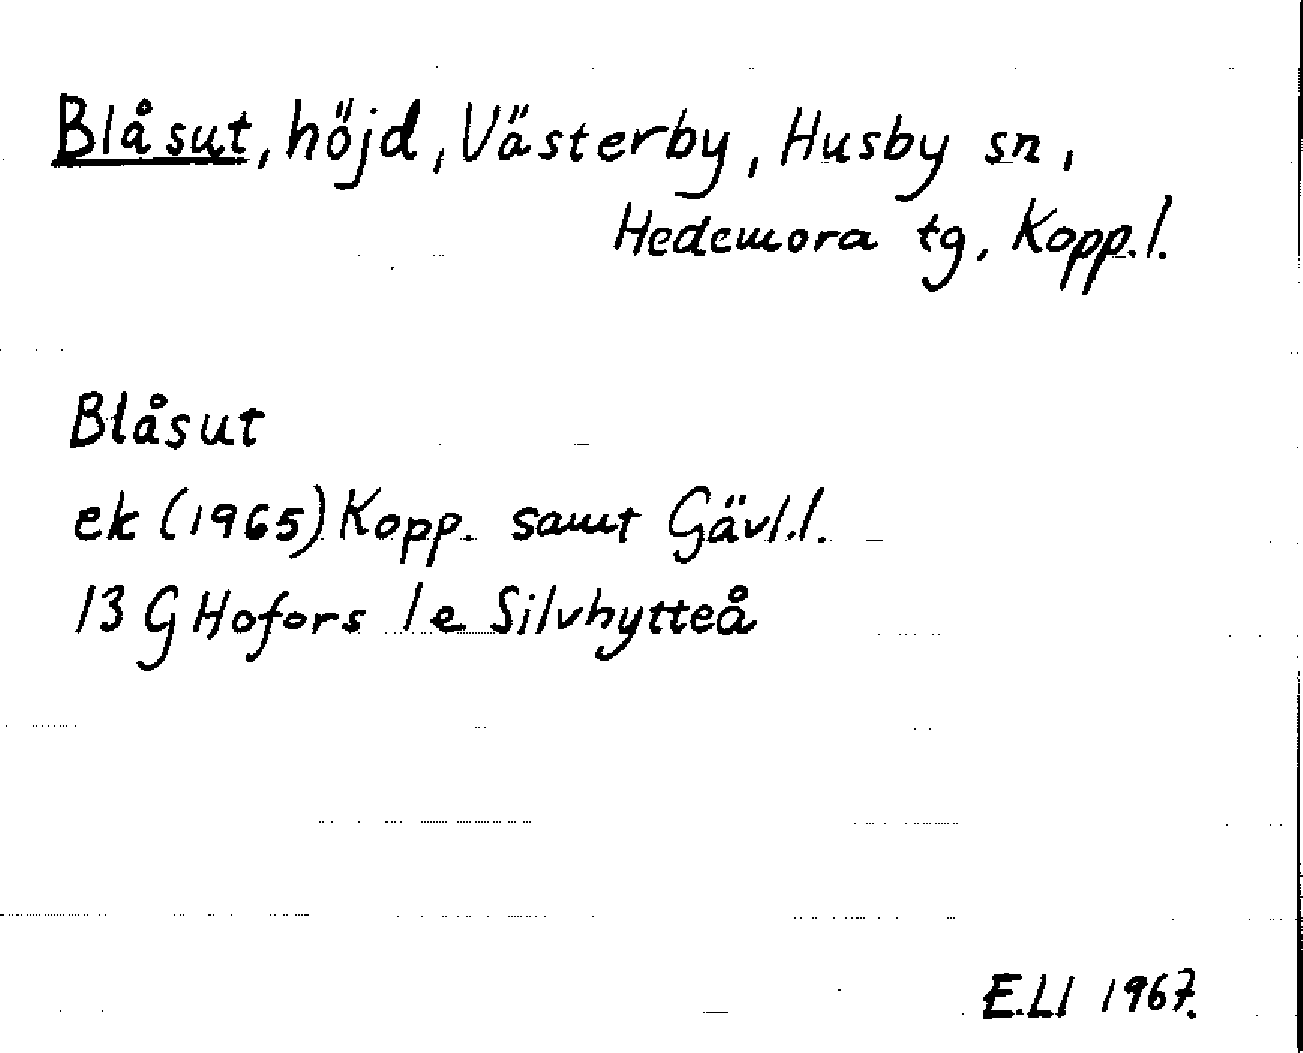 Blåsut, höjd, Västerby, Husby sn,
Hedemora tg, Kopp.l.
Blåsut
ek (1965) Kopp. samt Gävl.l.
13 G Hofors 1e Silvhytteå
E.Ll 1967.